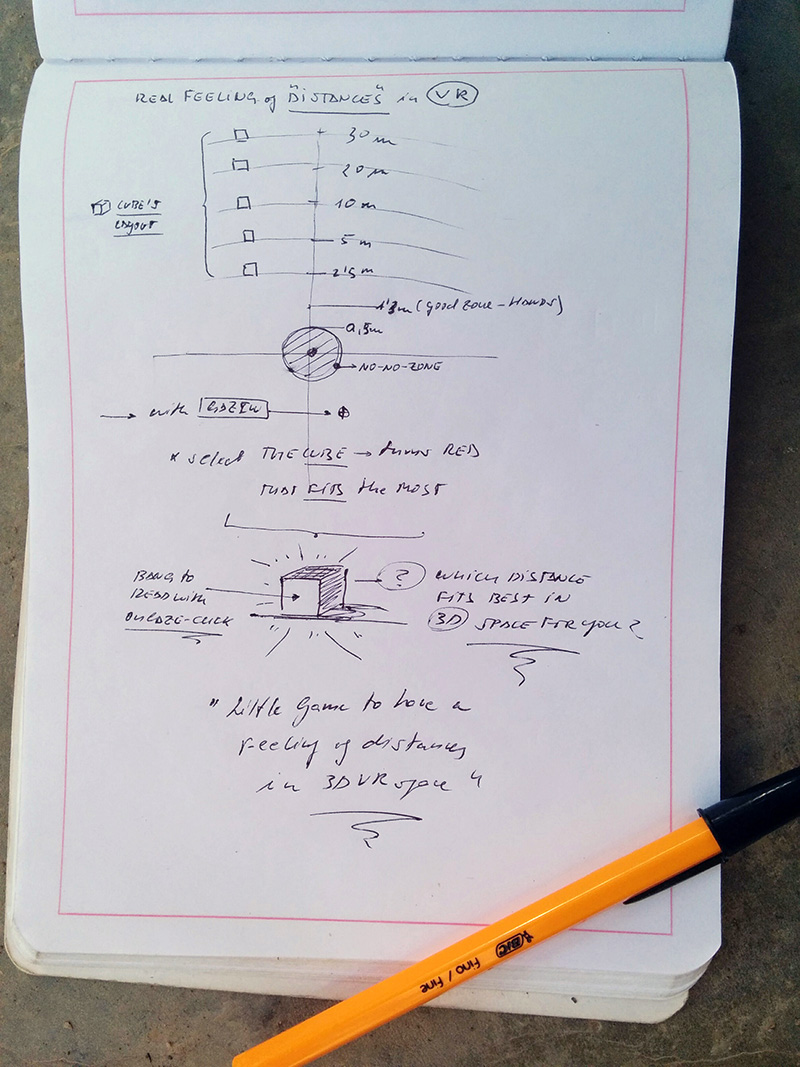 REAL FEELING of "DISTANCES" in VR
30 m
20 m
10 m
5 m
2'5m
CUBE'S
LAYOUT
1'3m (good zone-HANDS)
0,5m
NO-NO-ZONE
with
* select THE CUBE → turns RED
THAT FITS the MOST
BANG to
READ with
ON GAZE-CLICK
?
WHICH DISTANCE
FITS BEST in
3D SPACE FOR you?
"Little Game to have a
Feeling of distances
in 3D VR space"
BIC
fino / fine